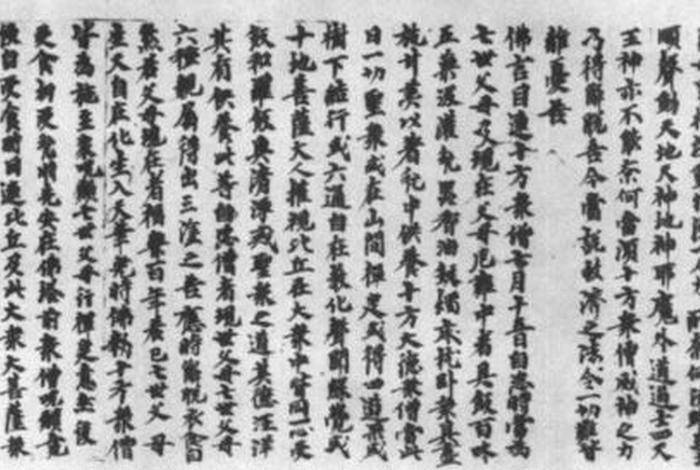 順聲動天地天神地神耶魔外道道士四天
王神亦不能奈何當須十方眾僧威神之力
乃得解脫吾今當說救濟之法令一切難皆
離憂苦
佛言目連十方眾僧七月十五日自恣時當為
七世父母及現在父母厄難中者具飯百味
五菓汲灌瓫器香油錠燭床卧眾具盡
世甘美以著瓫中供養十方大德眾僧當此
日一切聖眾或在山間禪定或得四道菓或
樹下經行或六通自在教化聲聞緣覺或
十地菩薩大人權現比丘在大眾中皆同一心受
鉢和羅飯具清淨戒聖眾之道其德汪洋
其有供養此等自恣僧者現世父母七世父母
六種親屬得出三塗之苦應時解脫衣食自
然若父母現在者福樂百年若已七世父母
生天自在化生入天華光時佛勑十方眾僧
皆為施主家呪願七世父母行禪定意然後
受食初受瓫時先安在佛塔前眾僧呪願竟
便自受食時目連比丘及此大眾大菩薩眾